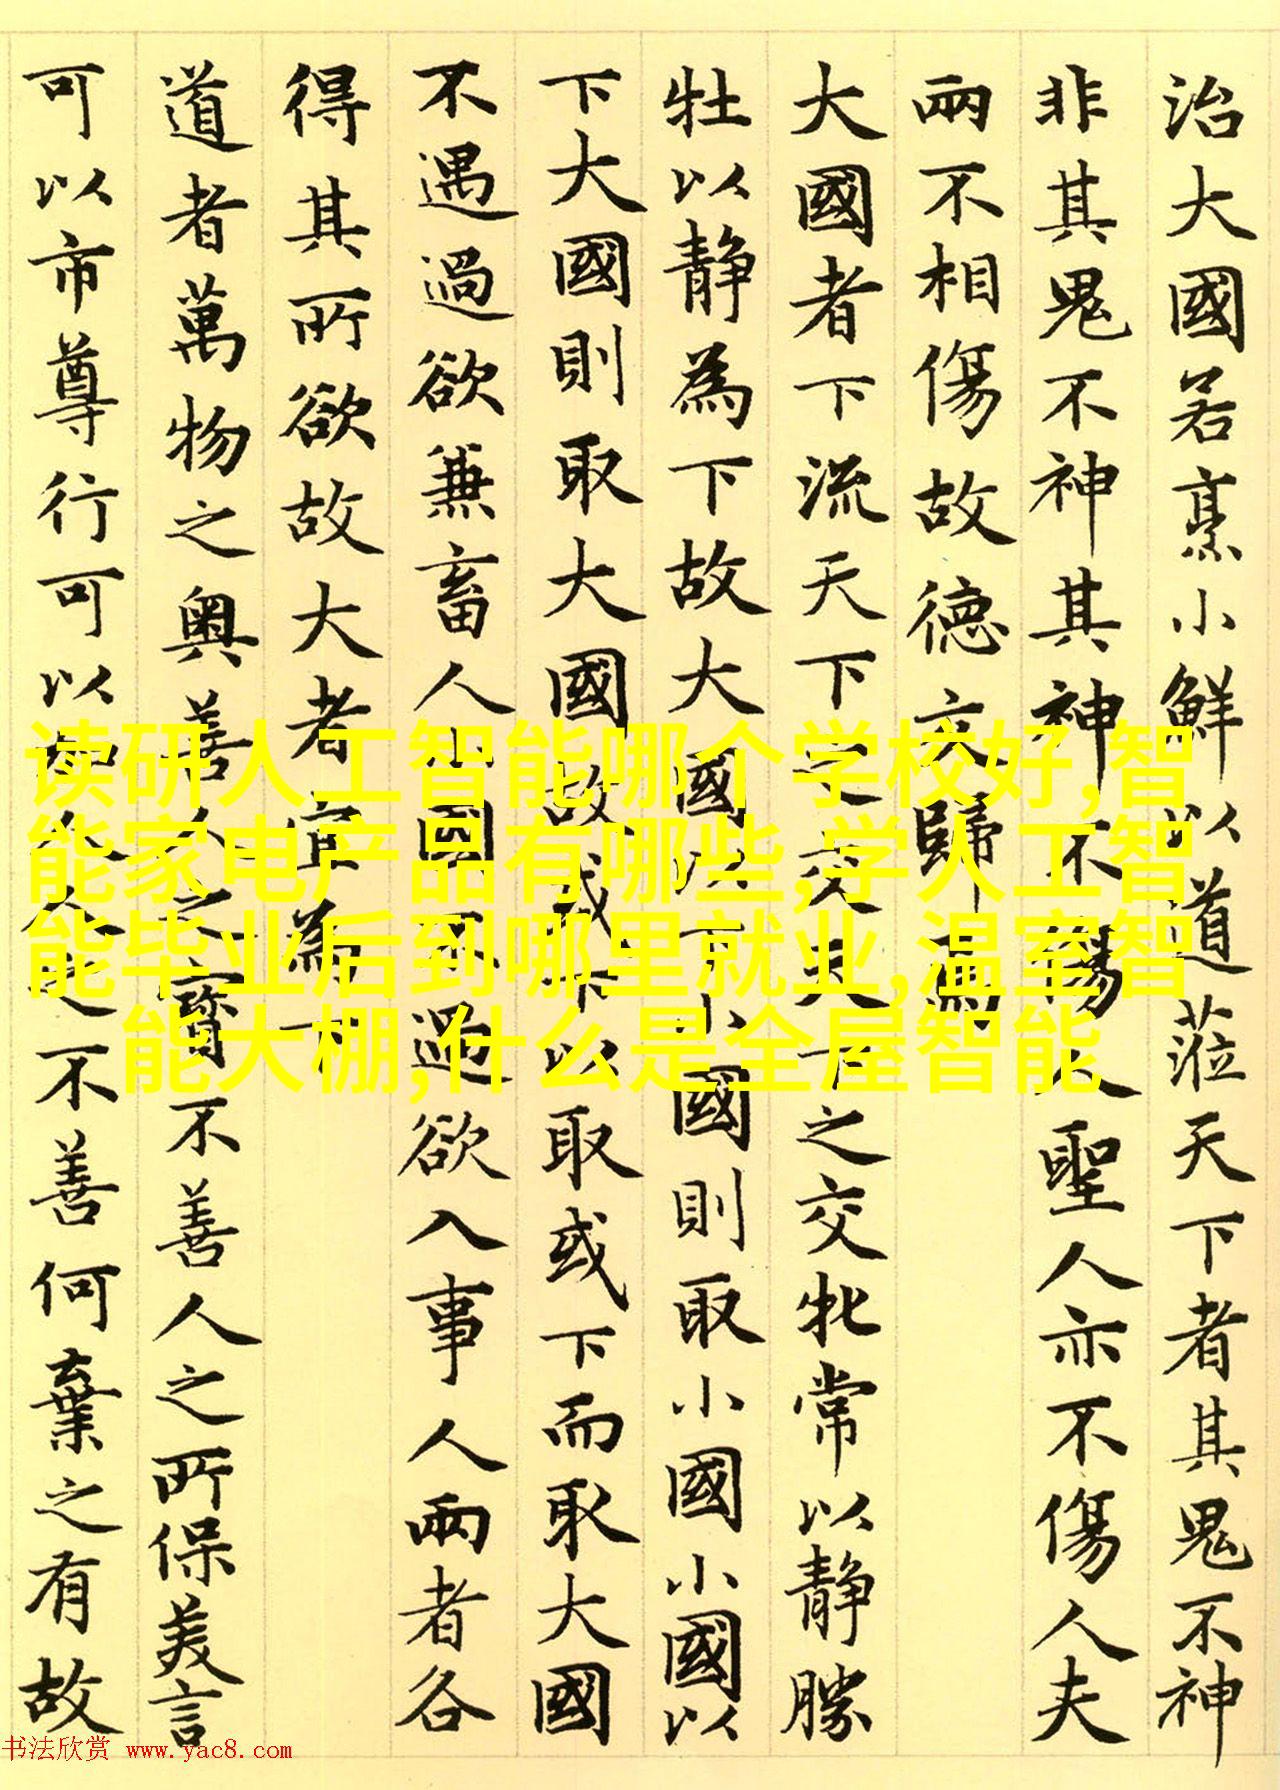 治大國若烹小鮮以道蒞天下者其鬼不神
非其鬼不神其神不傷人聖人亦不傷人夫
兩不相傷故德交歸焉
大國者下流天下之交天下之交牝常以靜勝
牡以靜為下故大國以下小國則取小國小國以
下大國則取大國故或下以取或下而取大國
不遇過欲兼畜人小國不過欲入事人兩者各
得其所欲故大者宜為下
道者萬物之奧善人之寶不善人之所保美言
可以市尊行可以加人人之不善何棄之有故
读研人工智能哪个学校好,智
能家电产品有哪些,学人工智
能毕业后到哪里就业,温室智
能大棚,什么是全屋智能
书法欣赏 www.yac8.com